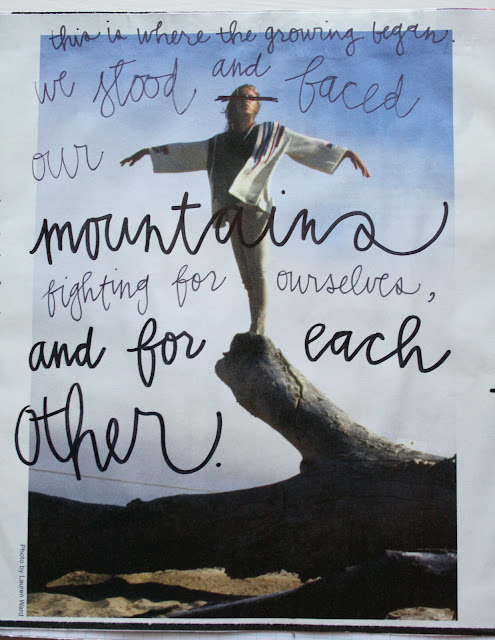 this is where the growing began.
we stood and faced
our
mountains
fighting for ourselves,
and for each
other.
Photo by Lauren Ward